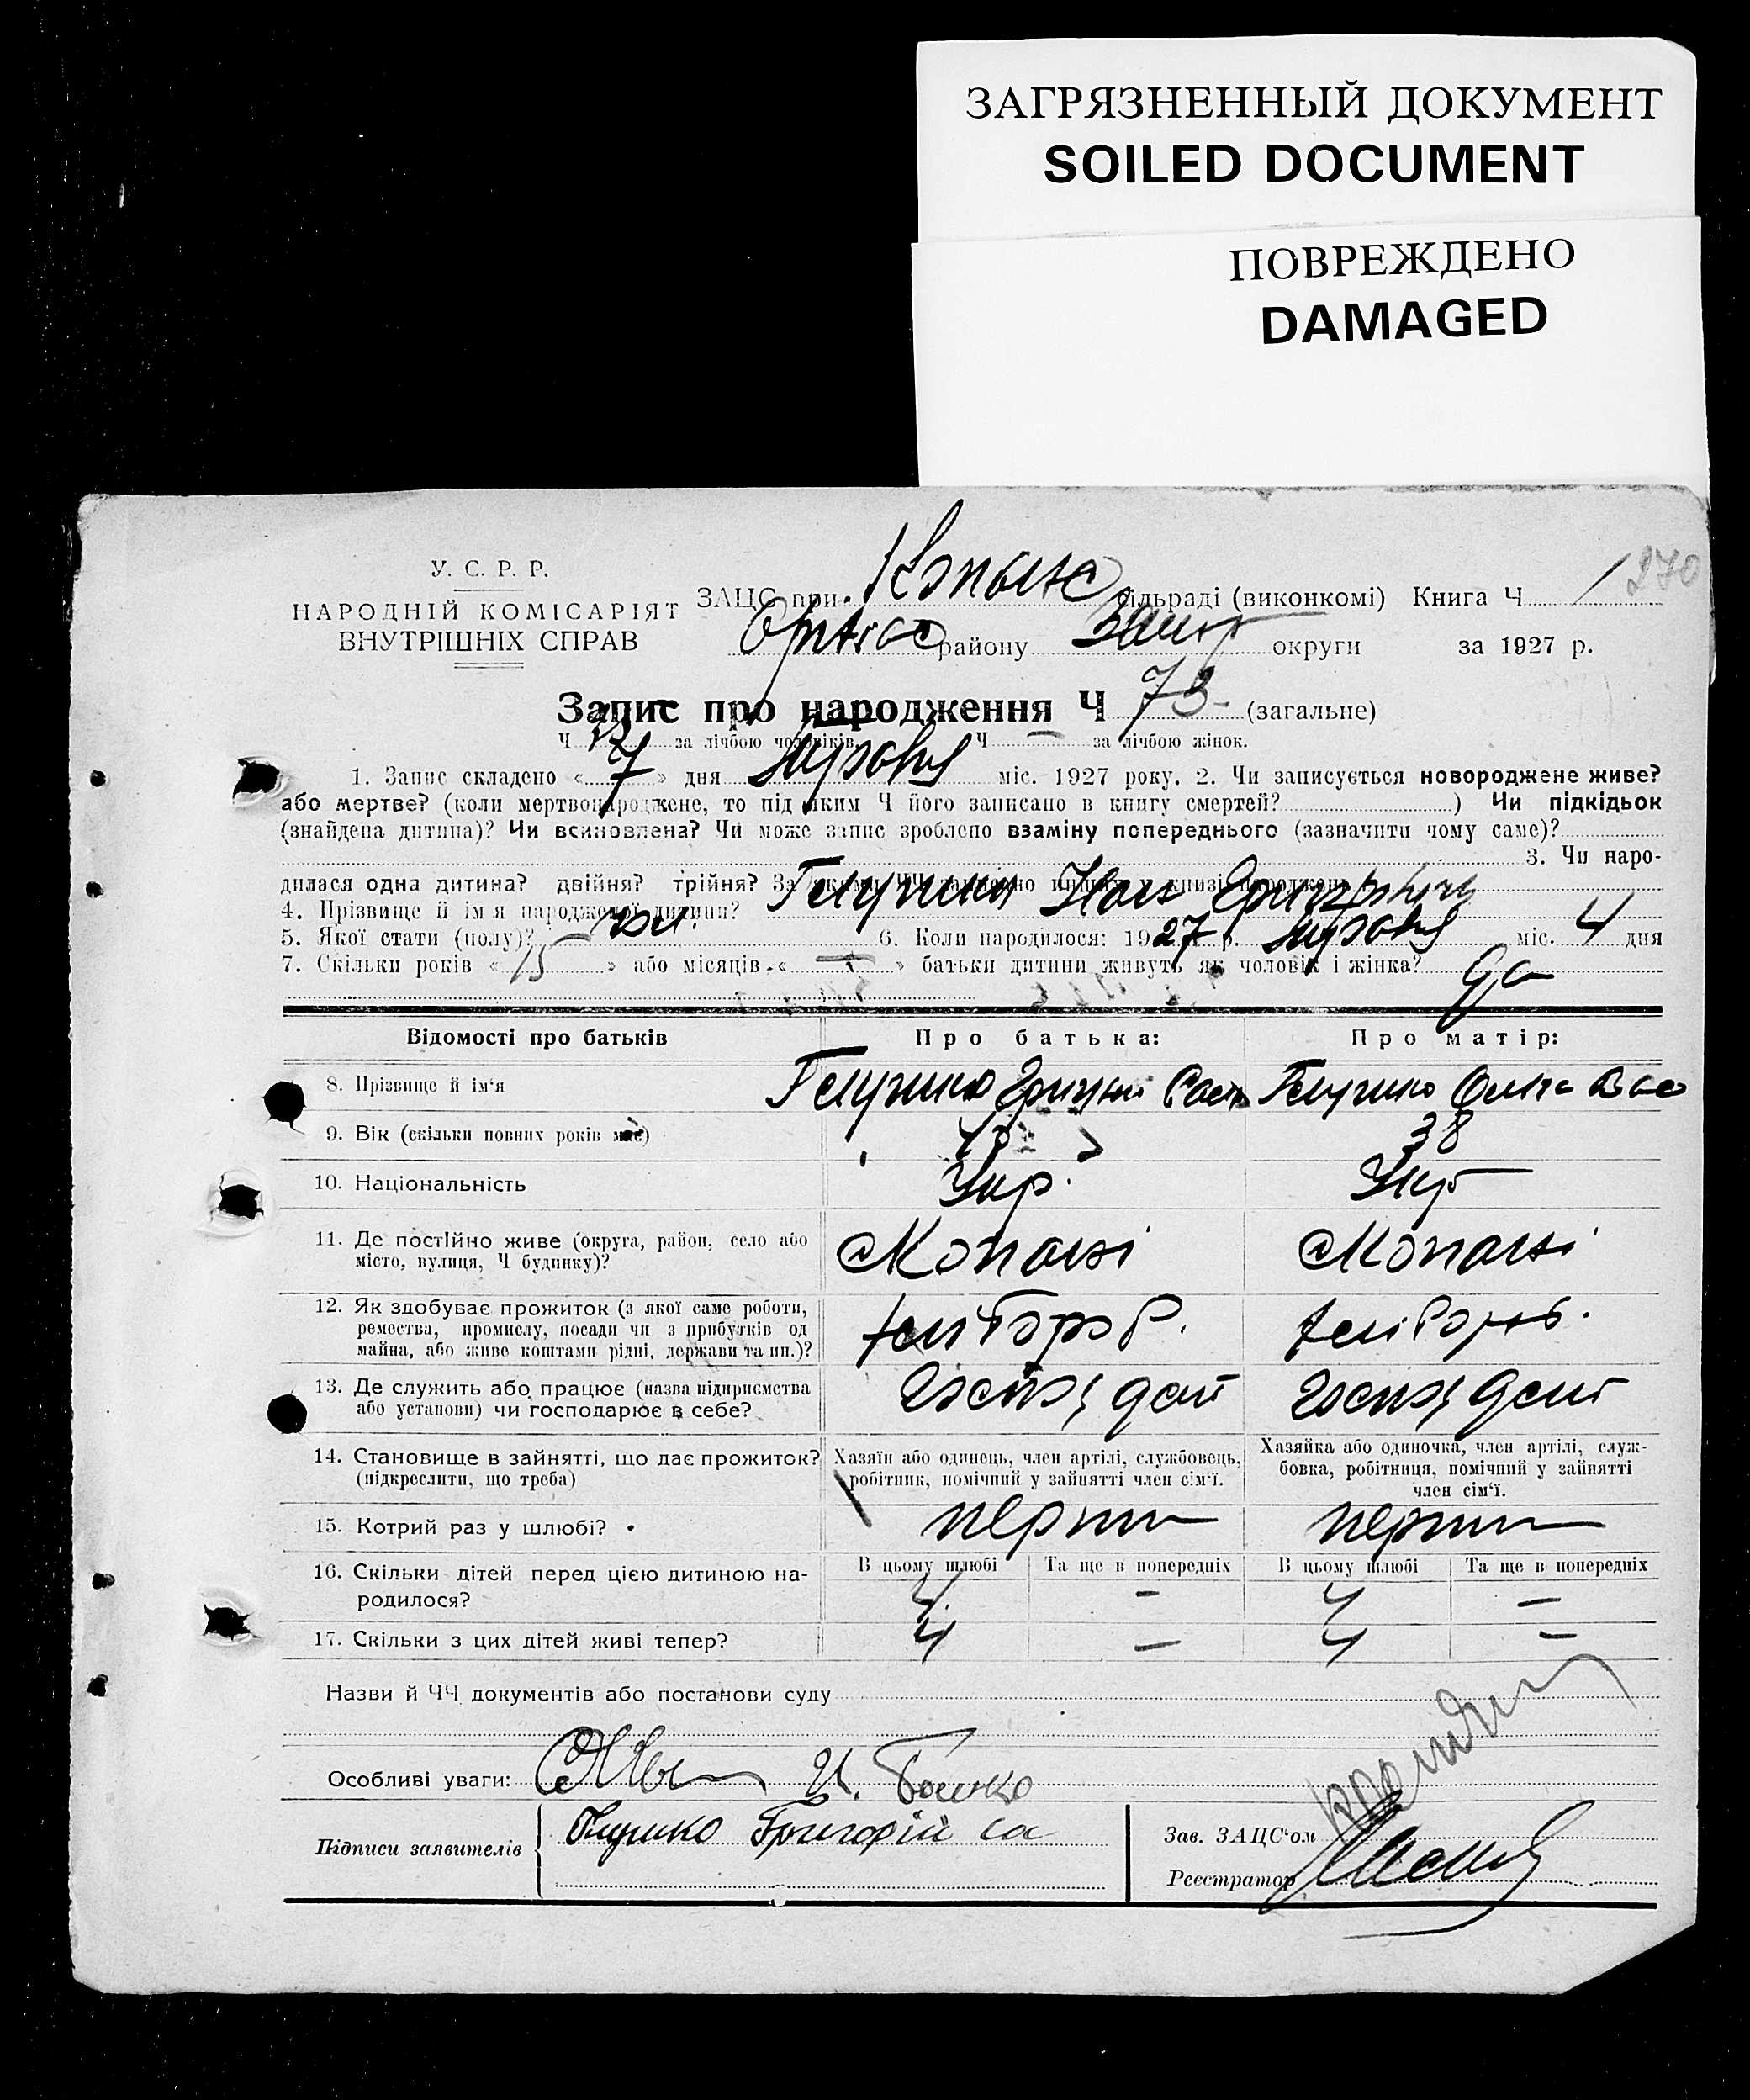 ЗАГРЯЗНЕННЫЙ ДОКУМЕНТ
SOILED DOCUMENT
ПОВРЕЖДЕНО
DAMAGED
270
У. С. Р. Р.
НАРОДНІЙ КОМІСАРІЯТ
ВНУТРІШНІХ СПРАВ
ЗАЦС при сільраді (виконкомі) Книга Ч
району округи за 1927 р.
Запис про народження Ч 73 (загальне)
Ч за лічбою чоловіків Ч — за лічбою жінок.
1. Запис складено « 7 » дня Травня міс. 1927 року. 2. Чи записується новороджене живе?
або мертве? (коли мертвонароджене, то під яким Ч його записано в книгу смертей? ) Чи підкідьок
(знайдена дитина)? Чи всиновлена? Чи може запис зроблено взаміну попереднього (зазначити чому саме)?
3. Чи наро-
дилася одна дитина? двійня? трійня? За якими ЧЧ записано інших у книзі народжень
4. Прізвище й ім'я народженої дитини?
5. Якої стати (полу)? 6. Коли народилося: 1927 р. Травня міс. 4 дня
7. Скільки років « 15 » або місяців « — » батьки дитини живуть як чоловік і жінка? Да
Відомості про батьків Про батька: Про матір:
8. Прізвище й ім'я
9. Вік (скільки повних років має) 38
10. Національність Укр. Укр
11. Де постійно живе (округа, район, село або
місто, вулиця, Ч будинку)?
12. Як здобуває прожиток (з якої саме роботи,
ремества, промислу, посади чи з прибутків од
майна, або живе коштами рідні, держави та ин.)?
хлібороб. хлібороб.
13. Де служить або працює (назва підприємства
або установи) чи господарює в себе?
14. Становище в зайнятті, що дає прожиток?
(підкреслити, що треба)
Хазяїн або одинець, член артілі, службовець,
робітник, помічний у зайнятті член сім'ї.
Хазяйка або одиночка, член артілі, служ-
бовка, робітниця, помічний у зайнятті
член сім'ї.
15. Котрий раз у шлюбі?
16. Скільки дітей перед цією дитиною на-
родилося?
В цьому шлюбі Та ще в попередніх В цьому шлюбі Та ще в попередніх
4 — 4 —
17. Скільки з цих дітей живі тепер? 4 — 4 —
Назви й ЧЧ документів або постанови суду
Особливі уваги:
Підписи заявителів Григорій
Зав. ЗАЦС'ом
Реєстратор